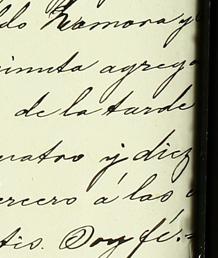 ldo Zamora y
inuta agrega
de la tarde
uatro y diez
ercero á las
tis. Doy fé.=